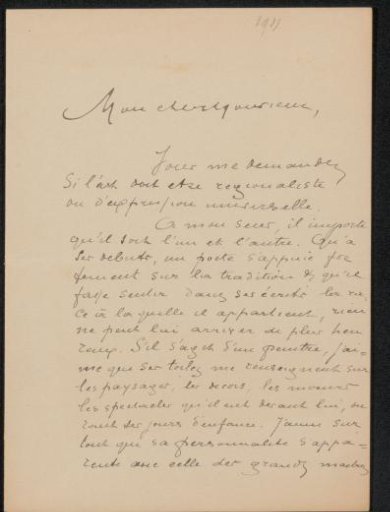 1913
Mon cher Monsieur,
Vous me demandez
si l'art doit etre regionaliste
ou d'expression universelle.
A mon sens, il importe
qu'il soit l'un et l'autre. Qu'a
ses debuts, un poete s'appuie for
tement sur la tradition & qu'il
fasse sentir dans ses écrits la ra-
ce à laquelle il appartient, rien
ne peut lui arriver de plus heu
reux. S'il s'agit d'un peintre, j'ai-
me que ses toiles me renseignent sur
les paysages, les decors, les moeurs
les spectacles qu'il eut devant lui, du
rant ses jours d'enfance. J'aime sur
tout que sa personnalité s'appa-
rente avec celle des grands maitres